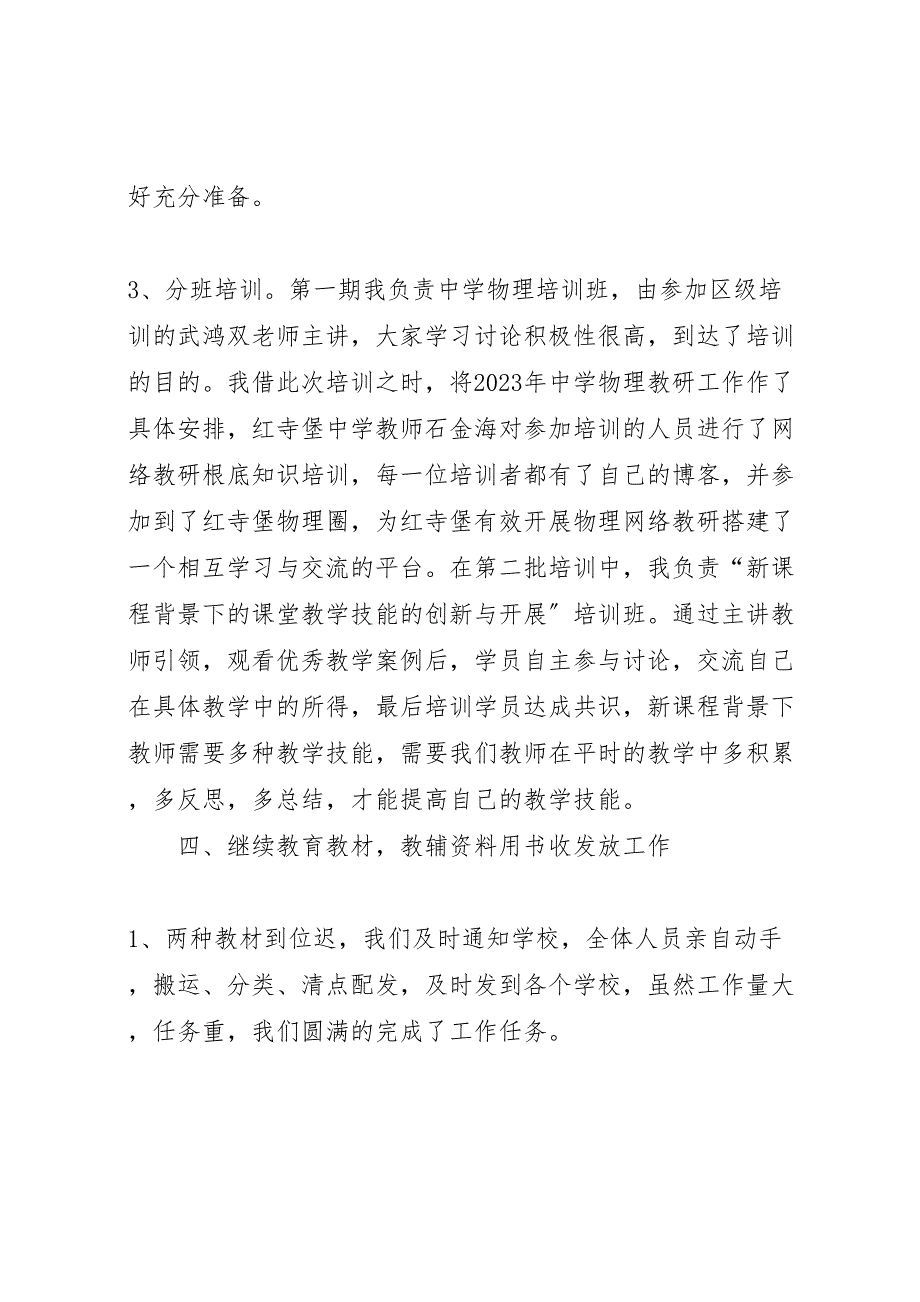 好充分准备。
3、分班培训。第一期我负责中学物理培训班，由参加区级培
训的武鸿双老师主讲，大家学习讨论积极性很高，到达了培训
的目的。我借此次培训之时，将2023年中学物理教研工作作了
具体安排，红寺堡中学教师石金海对参加培训的人员进行了网
络教研根底知识培训，每一位培训者都有了自己的博客，并参
加到了红寺堡物理圈，为红寺堡有效开展物理网络教研搭建了
一个相互学习与交流的平台。在第二批培训中，我负责“新课
程背景下的课堂教学技能的创新与开展〞培训班。通过主讲教
师引领，观看优秀教学案例后，学员自主参与讨论，交流自己
在具体教学中的所得，最后培训学员达成共识，新课程背景下
教师需要多种教学技能，需要我们教师在平时的教学中多积累
，多反思，多总结，才能提高自己的教学技能。
四、继续教育教材，教辅资料用书收发放工作
1、两种教材到位迟，我们及时通知学校，全体人员亲自动手
，搬运、分类、清点配发，及时发到各个学校，虽然工作量大
，任务重，我们圆满的完成了工作任务。